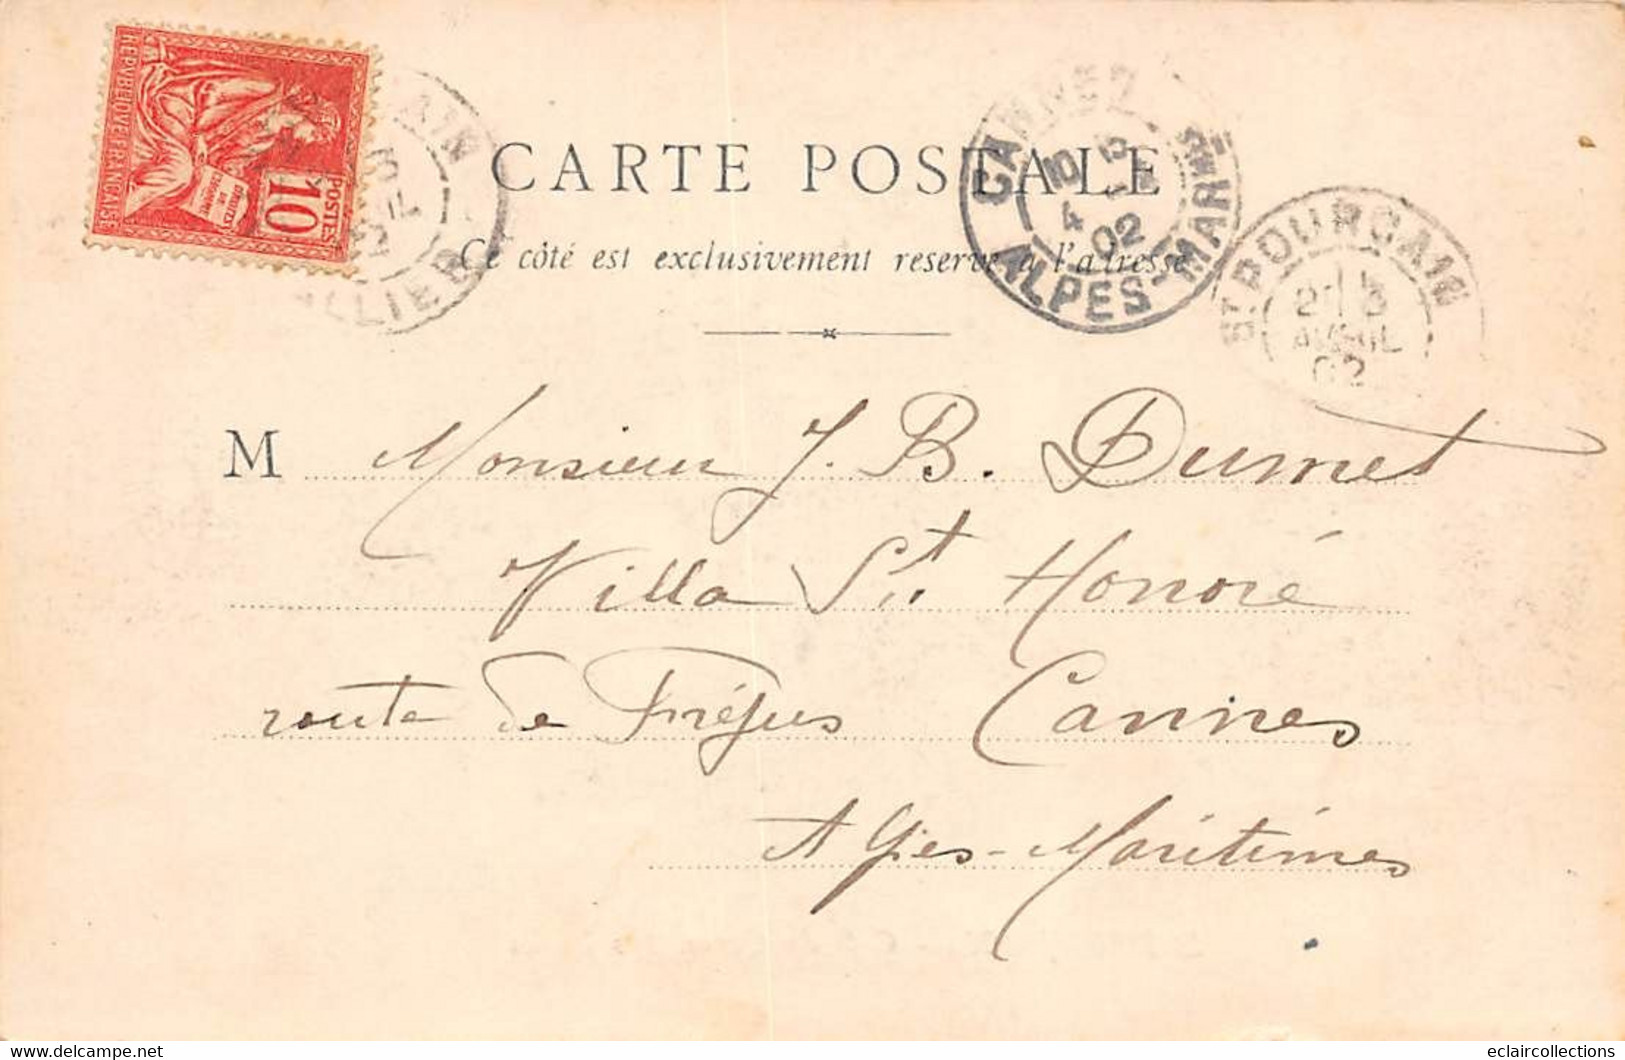 REPVBLIQVE FRANÇAISE
POSTES
10
DROITS DE L'HOMME
CARTE POSTALE
Ce côté est exclusivement reservé à l'adresse
CANNES
10
4
02
ALPES-MARIT
ST POURÇAIN
AVRIL
02
M Monsieur J. B. Dumet
Villa St Honoré
route de Fréjus Cannes
Alpes-Maritimes
eclaircollections